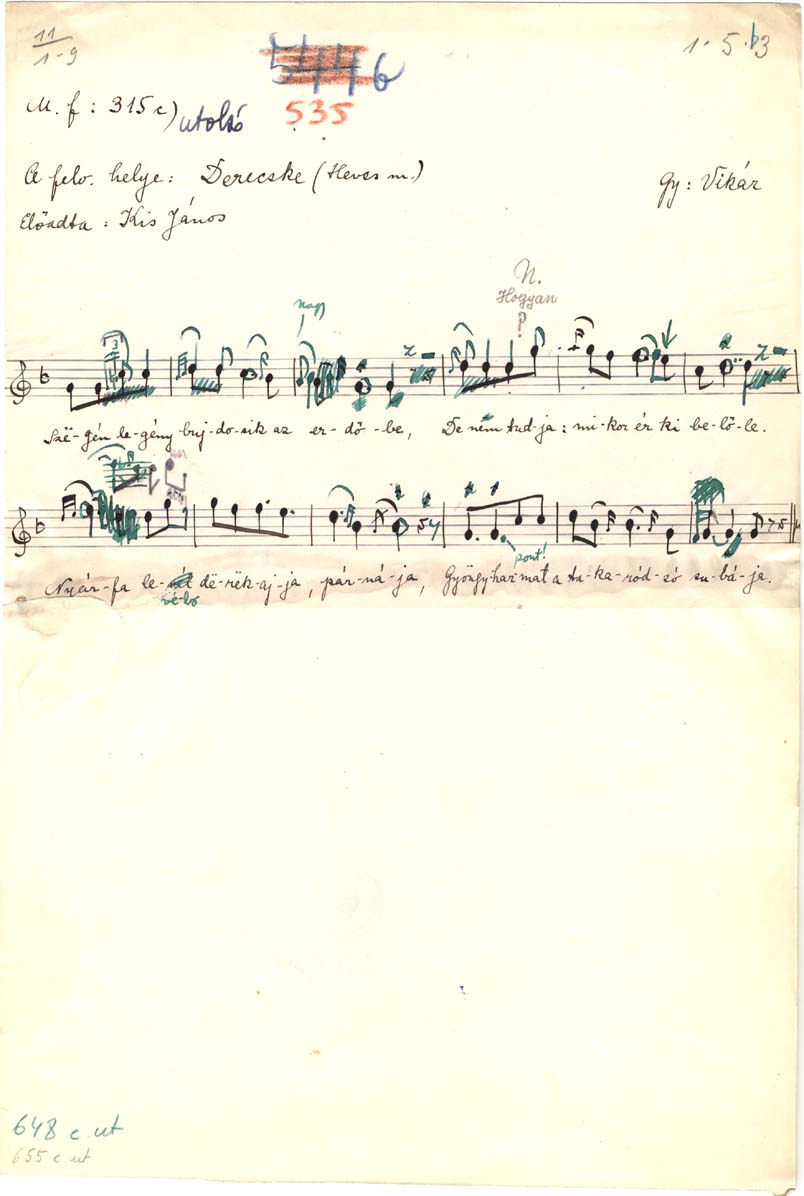 11
1-9
1. 5. b3
5446
535
M. f : 315 c) utolsó
A felv. helye: Derecske (Heves m.)
Gy: Vikár
Előadta : Kis János
N.
Hogyan
?
nagy
3
Szë-gén le-gény buj-do-sik az er-dő-be, De nem tud-ja: mi-kor ér ki be-lő-le.
pont!
Nyár-fa le- dë-rëk-aj-ja, pár-ná-ja, Gyöngyharmat a ta-ka-ród-zó su-bá-ja.
vé-lö
648 c. ut
655 c ut